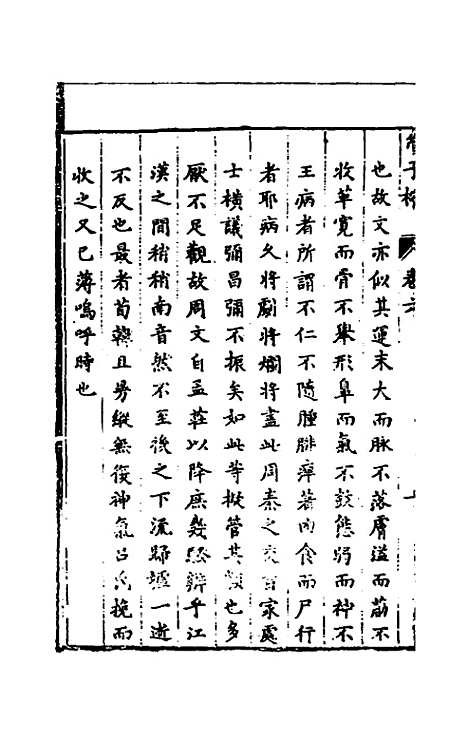 管子榷 卷六
也故文亦似其運末大而脉不落膚溢而筋不
收革寛而骨不舉形阜而氣不鼓態弱而神不
王病者所謂不仁不隨腫腓痺著肉食而尸行
者耶病久將劇將爛將盡此周秦之交百家處
士橫議彌昌彌不振矣如此等擬管其類也多
厭不足觀故周文自孟莊以降庶幾騷辨乎江
漢之間稍稍南音然不至後之下流歸壚一逝
不反也最者荀韓且曼縱無復神氣吕氏挽而
收之又已薄嗚呼時也